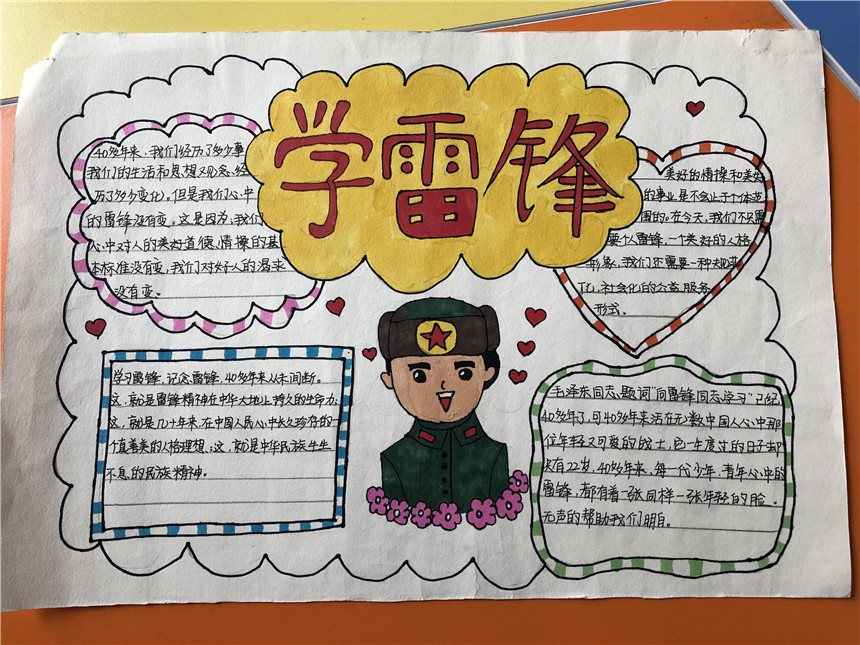 学雷锋
40多年来，我们经历了多少事
我们的生活和思想观念，经
历了多少变化。但是我们心中
的雷锋没有变。这是因为，我们
心中对人的美好道德、情操的基
本标准没有变，我们对好人的渴求
没有变。
美好的情操和美好
的事业是不会止于个体范
围的。在今天，我们不只需
要个人雷锋，一个美好的人格
形象，我们还需要一种规范
化，社会化的公益服务
形式。
学习雷锋，记念雷锋，40多年来从未间断。
这，就是雷锋精神在中华大地上持久的生命力。
这，就是几十年来，在中国人民心中长久珍存的一
个真善美的人格理想；这，就是中华民族生生
不息的民族精神。
毛泽东同志题词“向雷锋同志学习”已经
40多年了，可40多年来活在无数中国人心中那
位年轻又可爱的战士，他一生度过的日子却
只有22岁，40多年来，每一代少年，青年心中的
雷锋，都有着一张同样一张年轻的脸，
无声的帮助我们明白。